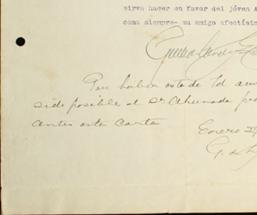 sirva hacer en favor del jóven A
como siempre- su amigo afectísim
Por haber este de Ud
sido posible al Sr Ahumada pre
antes esta Carta
Enero 2
G. de L